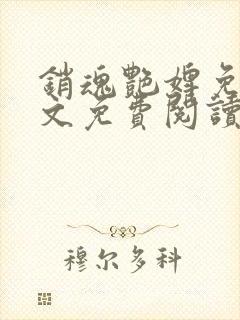 銷魂艷婢免
文免費閱讀
穆尔多科